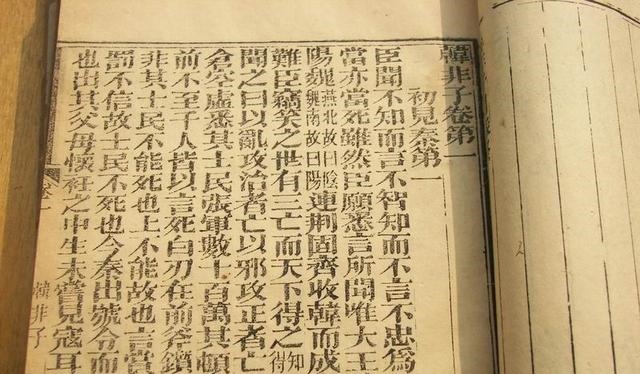 韓非子卷第一
初見秦第一
臣聞不知而言不智知而不言不忠為
當亦當死雖然臣願悉言所聞唯大王
陽魏燕北故曰陰魏南故曰陽連荊固齊收韓而成
難臣竊笑之世有三亡而天下得之知得
聞之曰以亂攻治者亡以邪攻正者亡
倉空虛悉其士民張軍數十百萬其頓
前不至千人皆以言死白刃在前斧鑕
非其士民不能死也上不能故也言賞
罰不信故士民不死也今秦出號令而
也出其父母懷衽之中生未嘗見寇耳
卷一
韓非子